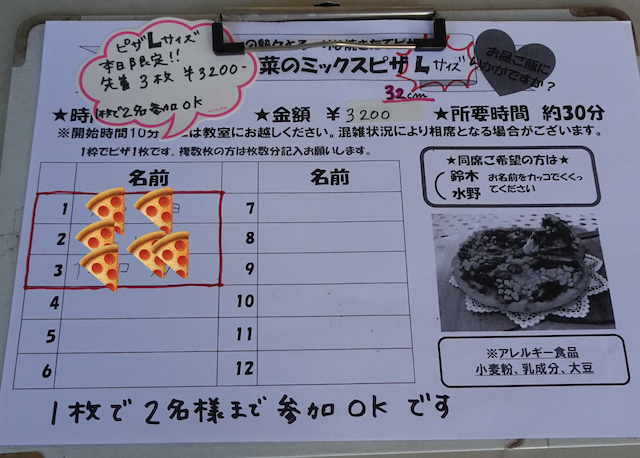 ピザLサイズ
本日限定!!
先着3枚 ¥3200-
1枚で2名参加OK
菜のミックスピザLサイズ
32cm
お昼ご飯に
いかがですか?
★金額 ¥3200 ★所要時間 約30分
※開始時間10分 には教室にお越しください。混雑状況により相席となる場合がございます。
1枠でピザ1枚です。複数枚の方は枚数分記入お願いします。
名前 名前
1 7
2 8
3 9
4 10
5 11
6 12
★同席ご希望の方は★
鈴木
水野
お名前をカッコでくくっ
てください
※アレルギー食品
小麦粉、乳成分、大豆
1枚で2名様まで参加OKです